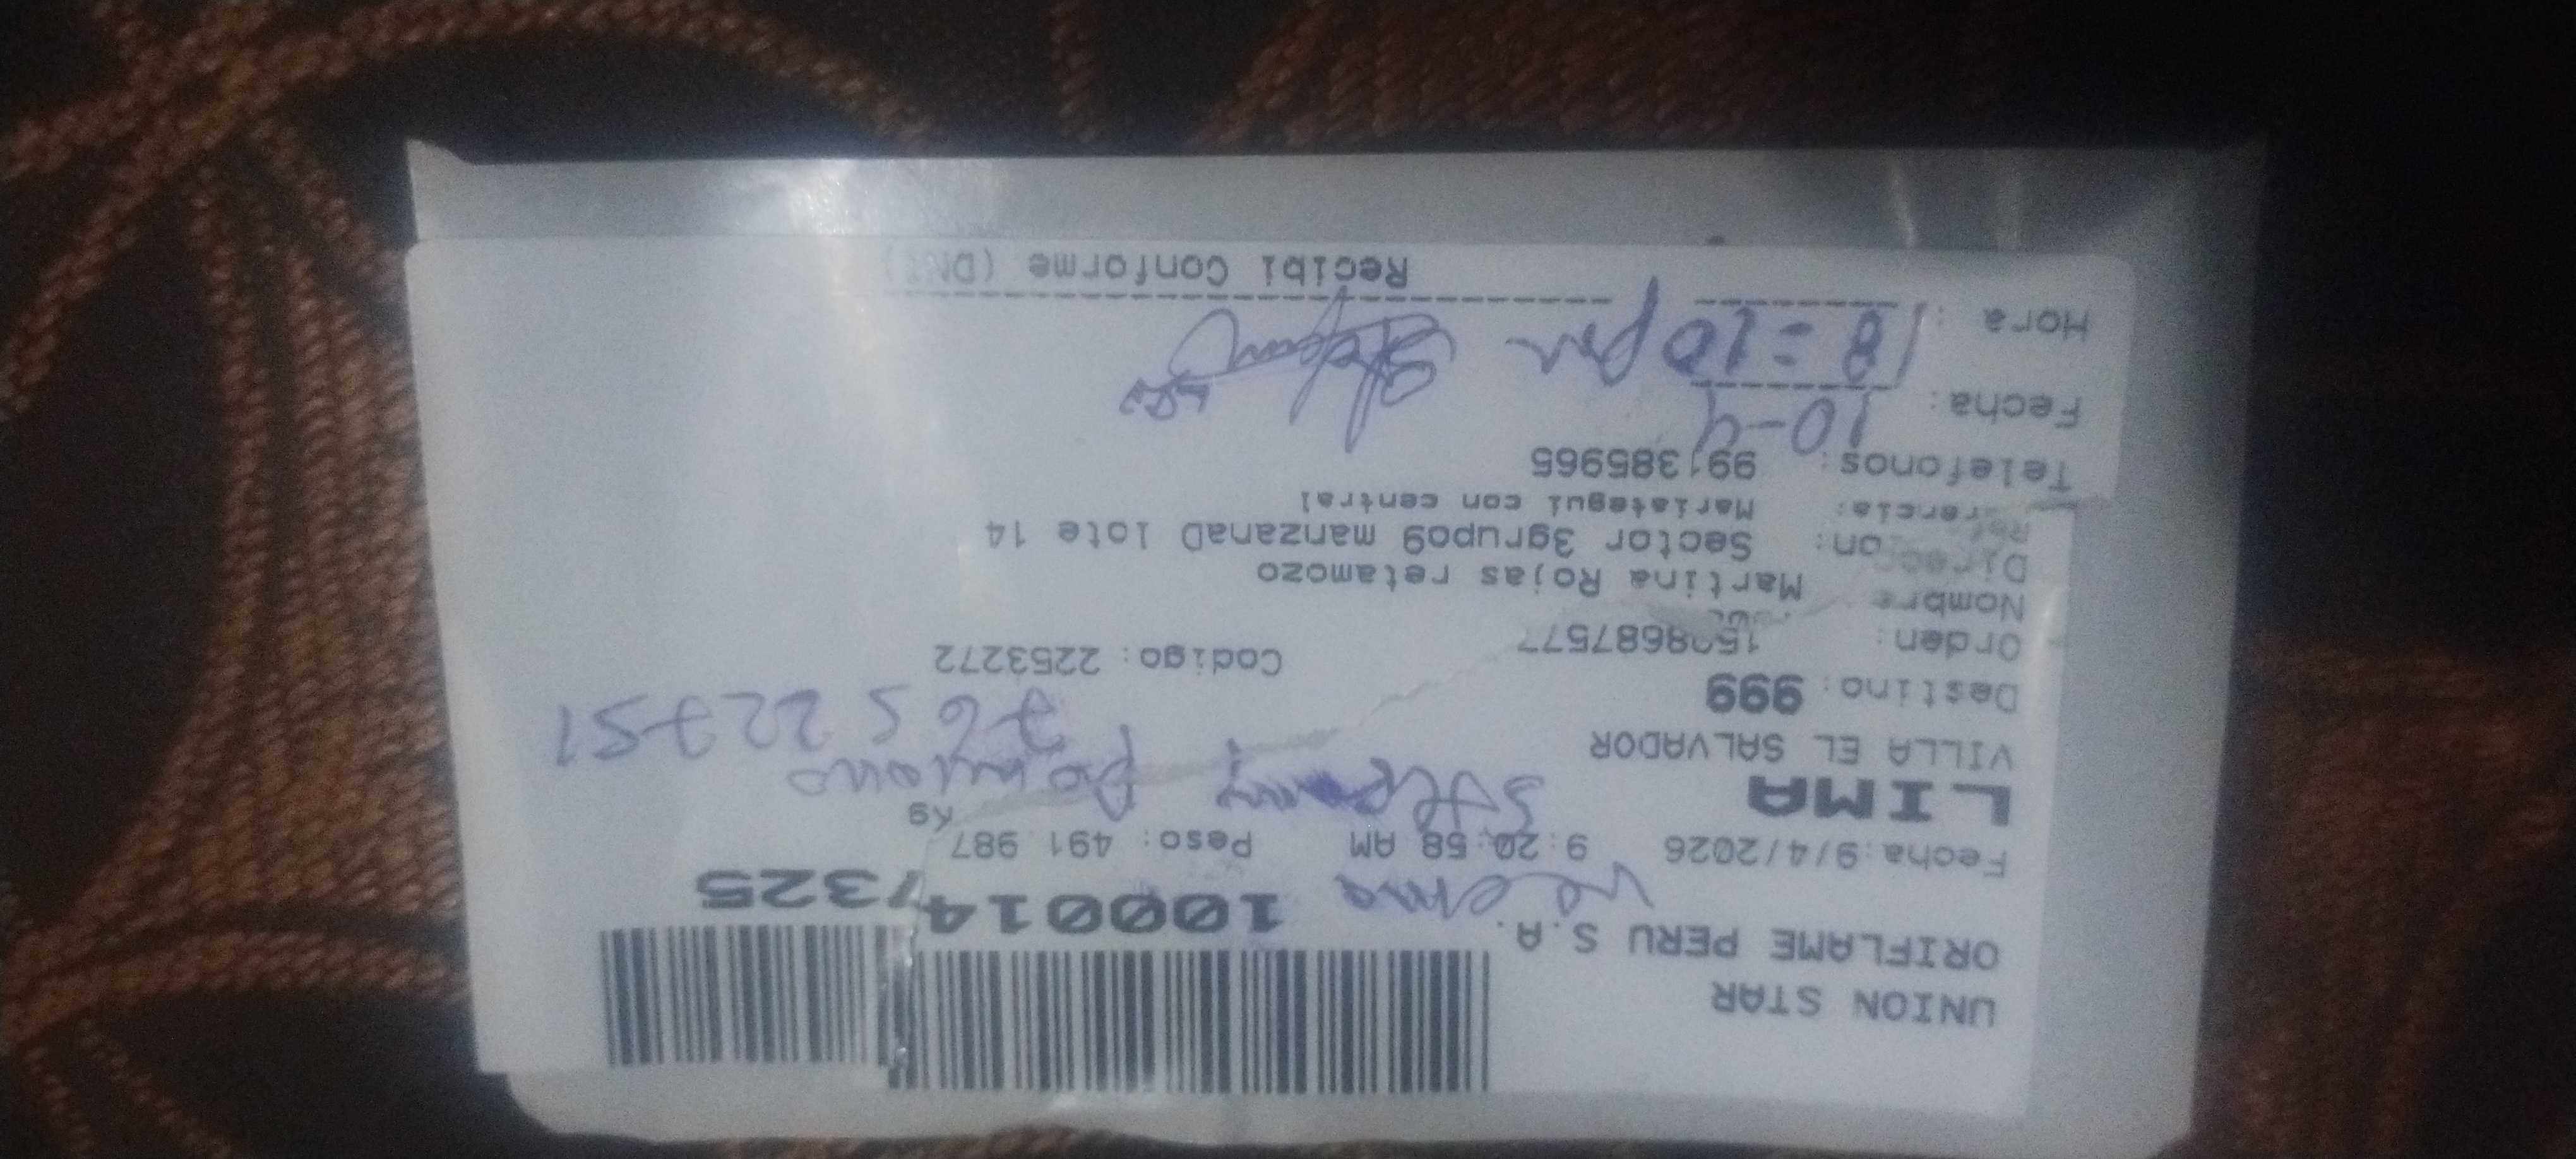 UNION STAR
ORIFLAME PERU S.A.
1000147325
Fecha:9/4/2026 9:20:58 AM Peso: 491.987 Kg
LIMA
VILLA EL SALVADOR
Destino: 999
76522751
Orden: Codigo: 2253272
Nombre Martina Rojas retamozo
Direccion: Sector 3grupo9 manzanaD lote 14
Referencia: Mariategui con central
Telefonos: 991385965
Fecha: 10-4
Hora : 18=10 pm
Recibi Conforme (DNI)